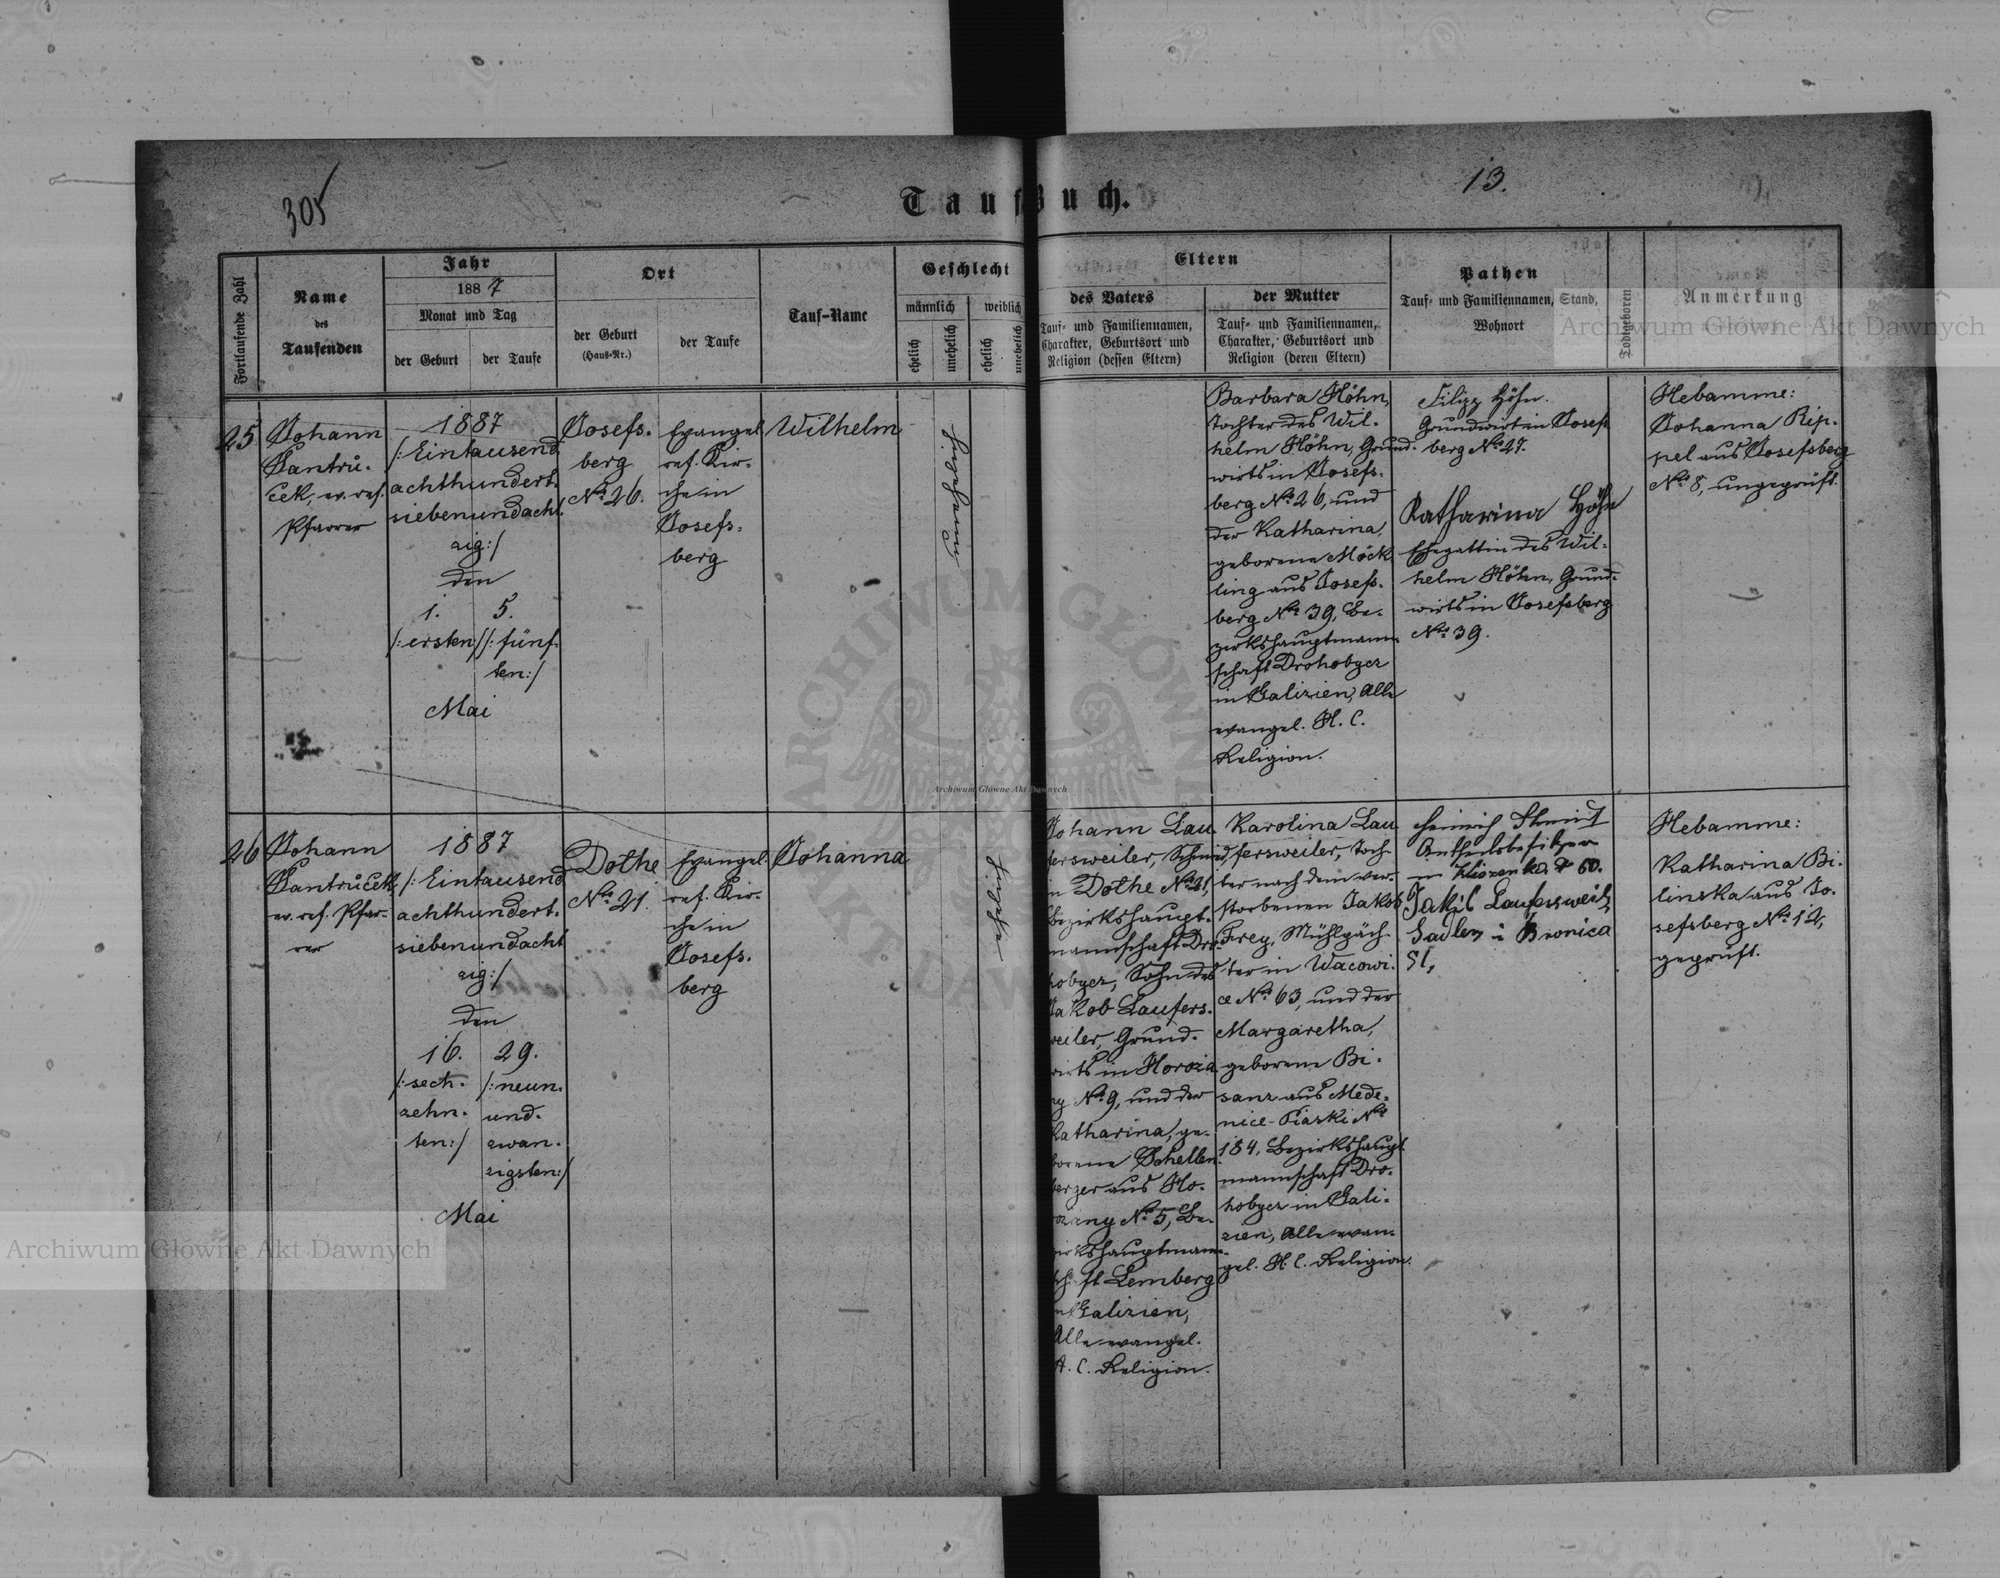 305
13.
Taufbuch.
Fortlaufende Zahl
Name
des
Taufenden
Jahr
1887
Monat und Tag
der Geburt
der Taufe
Ort
der Geburt
(Haus-Nr.)
der Taufe
Tauf-Name
Geschlecht
männlich
weiblich
ehelich
unehelich
ehelich
unehelich
Eltern
des Vaters
Tauf- und Familiennamen,
Charakter, Geburtsort und
Religion (dessen Eltern)
der Mutter
Tauf- und Familiennamen,
Charakter, Geburtsort und
Religion (deren Eltern)
Pathen
Tauf- und Familiennamen, Stand,
Wohnort
Todtgeboren
Anmerkung
25
Johann
Jantrů-
ček, ev. ref.
Pfarrer
1887
/:Eintausend
achthundert-
siebenundacht-
zig:/
den
1.
5.
/:ersten/
/:fünf-
ten:/
Mai
Josefs-
berg
No 26.
Evangel.
ref. Kir-
che in
Josefs-
berg
Wilhelm
Barbara Höhn,
Tochter des Wil-
helm Höhn, Grund-
wirts in Josefs-
berg No 26, und
der Katharina,
geborene Möck
ling aus Josefs-
berg No 39, Be-
zirkshauptmann-
schaft Drohobycz
in Galizien, Alle
evangel. H. C.
Religion.
Filipp Höhn.
Grundwirt in Josefs
berg No 27.
Katharina Höhn
Ehegattin des Wil-
helm Höhn, Grund-
wirts in Josefsberg
No 39.
Hebamme:
Johanna Rip-
pel aus Josefsberg
No 8, ungeprüft.
26
Johann
Jantrůček
ev. ref. Pfar-
rer
1887
/:Eintausend
achthundert-
siebenundacht
zig:/
den
16.
29.
/:sech-
zehn-
ten:/
/:neun-
und-
zwan-
zigsten:/
Mai
Dothe
No 21.
Evangel.
ref. Kir-
che in
Josefs-
berg
Johanna
ehelich
Johann Lau-
fersweiler, Schmied
in Dothe No 21,
Bezirkshaupt-
mannschaft Dro-
hobycz, Sohn des
Jakob Laufers-
weiler, Grund-
wirts in Horoża
ny No 9, und der
Katharina, ge-
borene Schellen-
berger aus Ho-
rożany No 5, Be-
zirkshauptmann-
schaft Lemberg
in Galizien,
Alle evangel.
H. C. Religion.
Karolina Lau
fersweiler, Toch-
ter nach dem ver-
storbenen Jakob
Frey, Mühlpäch-
ter in Wacowi-
ce No 63, und der
Margaretha,
geborene Bi-
sanz aus Mede-
nice-Piaski No
184, Bezirkshaupt
mannschaft Dro-
hobycz in Gali-
zien, Alle evan-
gel. H. C. Religion.
Heinrich Schmidt
Antheilsbesitzer
60.
Laufersweiler
Bronica
51,
Hebamme:
Katharina Bi-
linska aus Jo-
sefsberg No 12,
geprüft.
Archiwum Główne Akt Dawnych
Archiwum Główne Akt Dawnych
Archiwum Główne Akt Dawnych
ARCHIWUM GŁÓWNE
AKT DAWNYCH